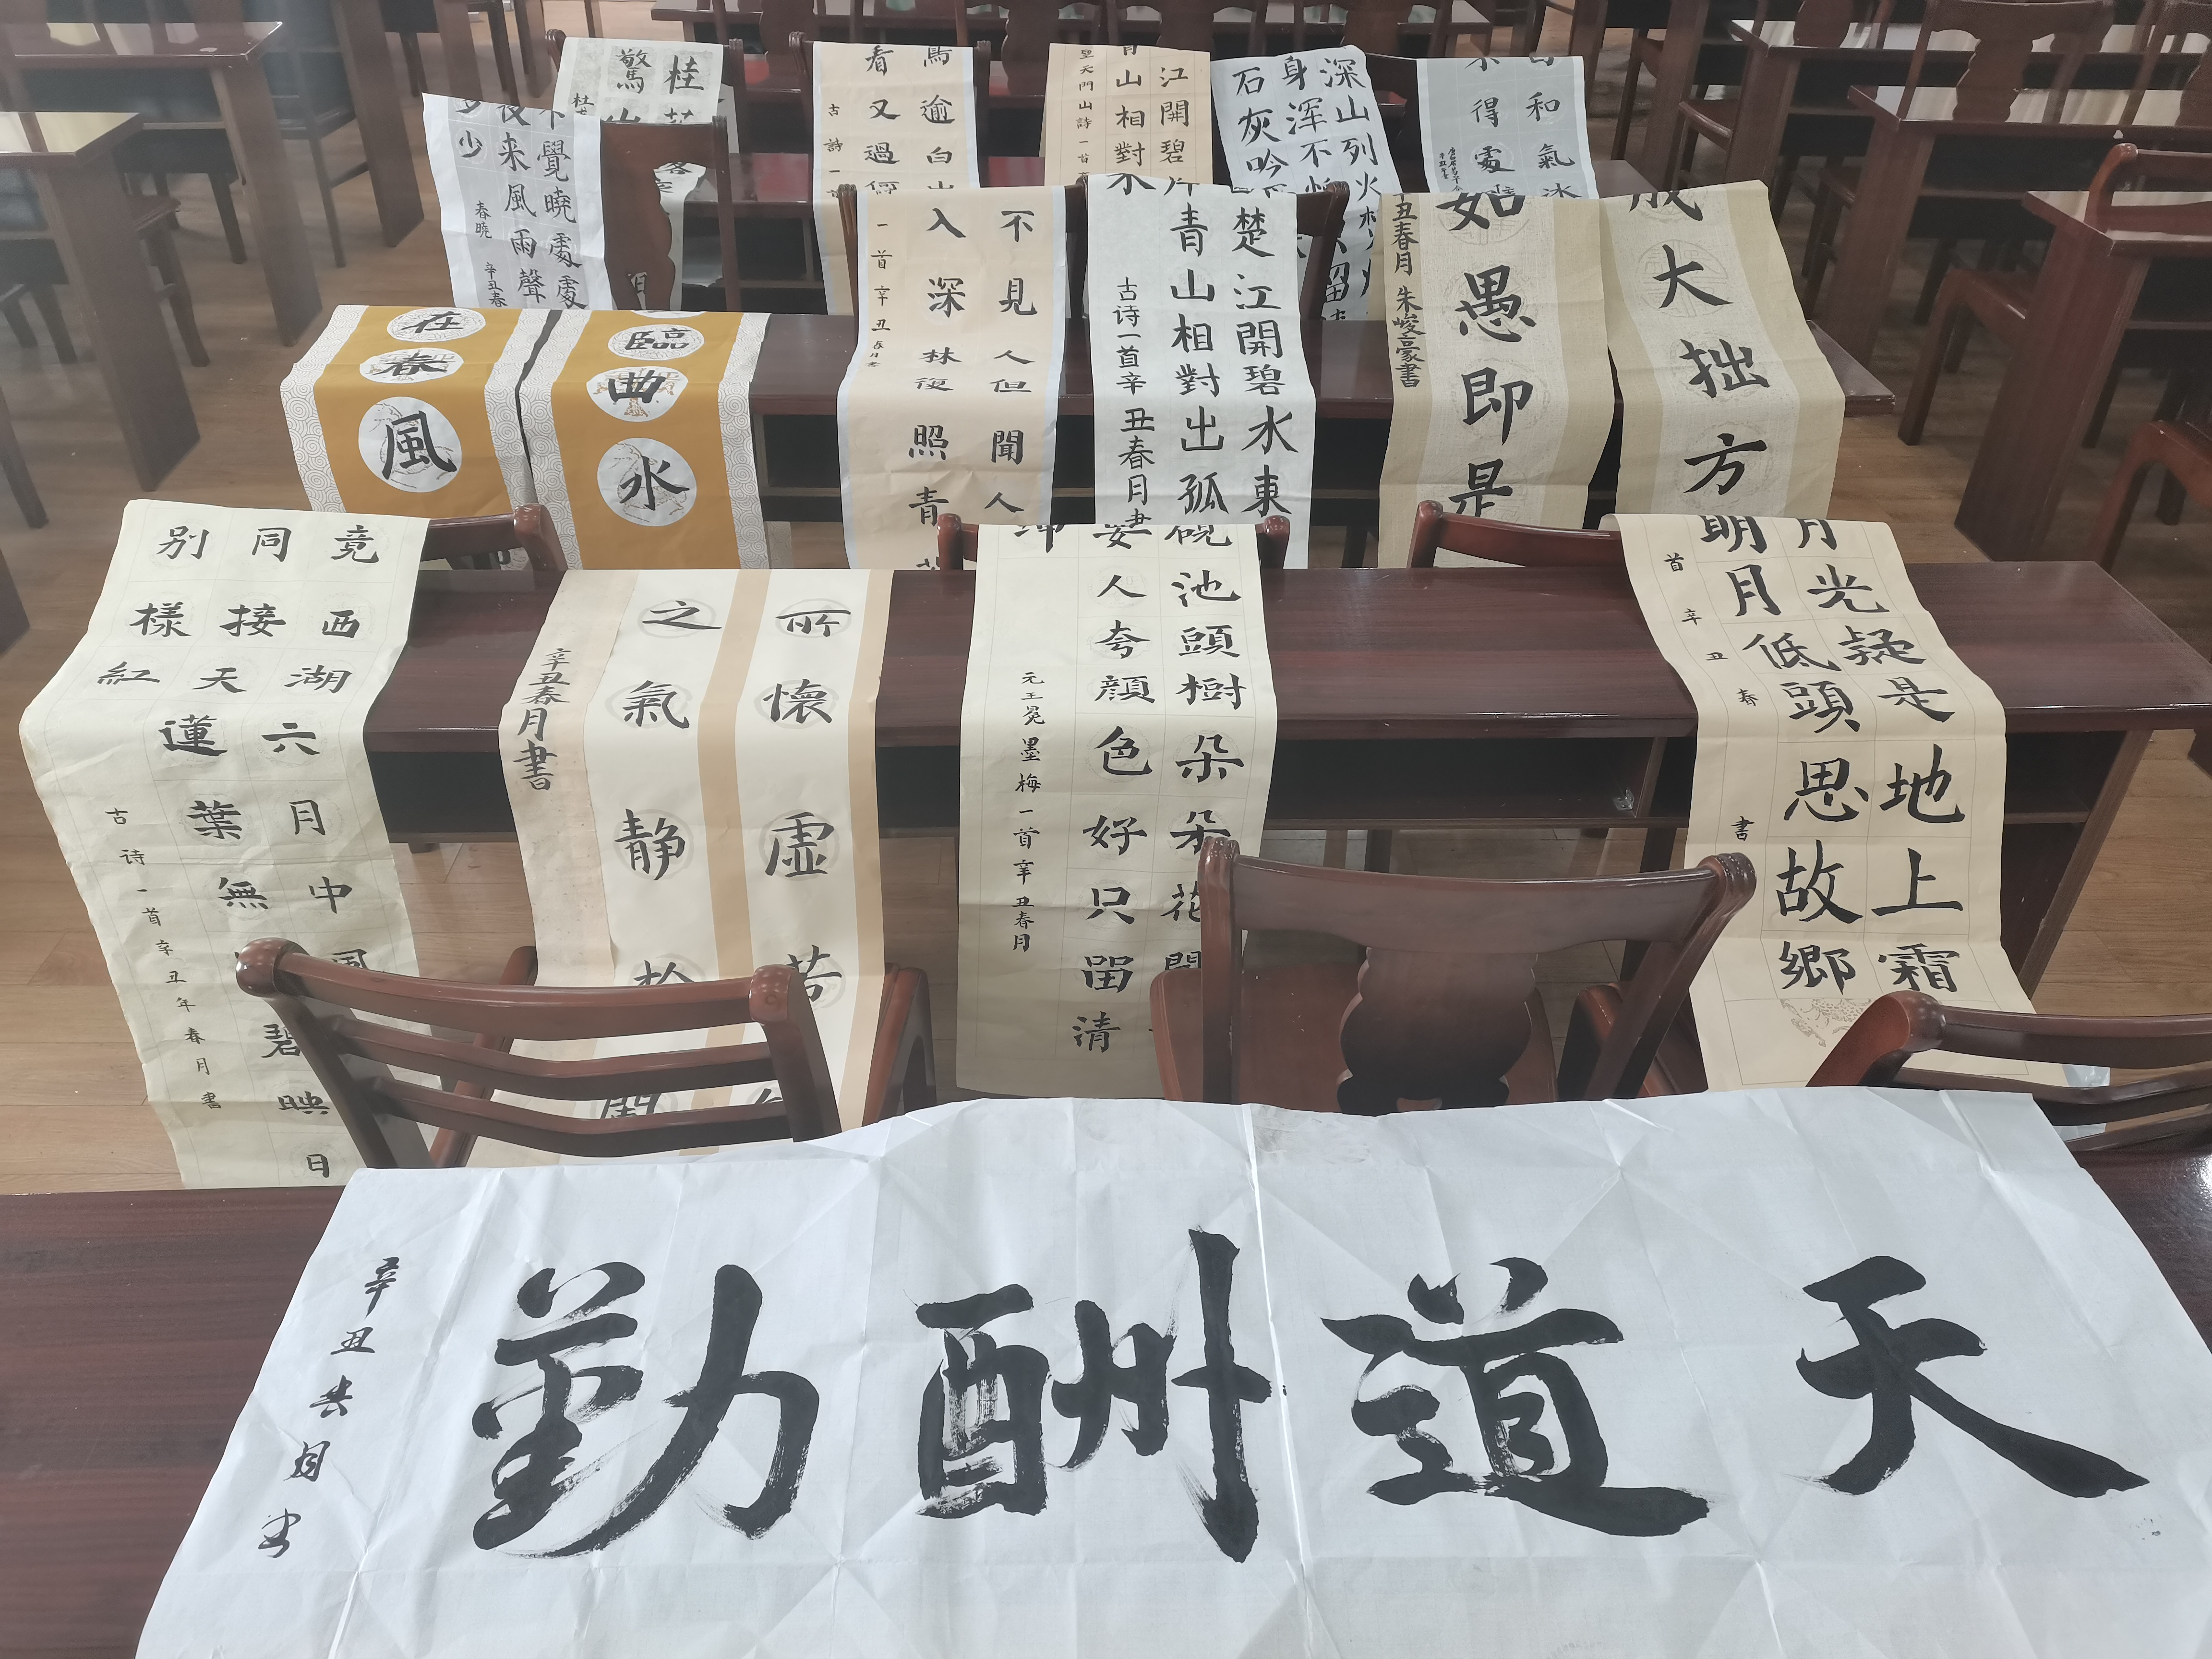 天道酬勤
辛丑
竟西湖六月中風
同接天蓮葉無
碧映日
别樣紅
古诗一首辛丑年春月書
所懷虚若
之氣静於
辛丑春月書
硯池頭樹朵朵花開
人夸顔色好只留清
元王冕墨梅一首辛丑春月
月光疑是地上霜
明月低頭思故鄉
首辛丑春
書
臨曲水
在春風
不見人但聞人
入深林復照青
一首辛丑春月書
楚江開碧水東
青山相對出孤
古诗一首辛丑春月書
成大拙方
如愚即是
丑春月朱峻豪書
不覺曉處處
夜来風雨聲
少
春曉
辛丑春
桂花
驚山
馬逾白
看又過
古詩一
江開碧
青山相對水
望天門山詩一首
深山列火
身浑不怕
石灰吟
和氣
不得處